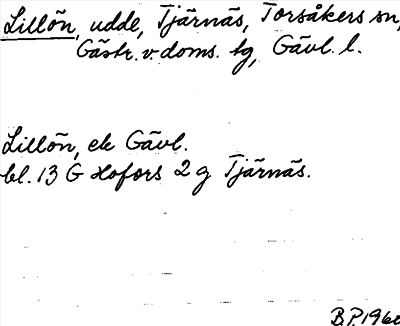 Lillön, udde, Tjärnäs, Torsåkers sn,
Gästr. v. doms. tg, Gävl. l.
Lillön, ek Gävl.
bl. 13 G Hofors 2 g Tjärnäs.
B.P. 1960